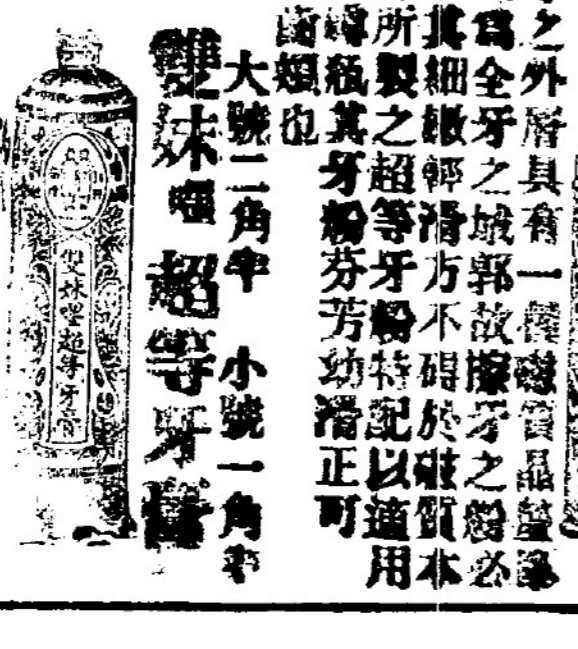 之外層具有一種磁質晶瑩
爲全牙之城郭故擦牙之粉必
其細緻輕滑方不碍於磁質本
所製之超等牙粉特配以適用
瓶其牙粉芬芳幼滑正可
也
大號二角半 小號一角半
雙妹嚜 超等牙膏
双妹嚜超等牙膏